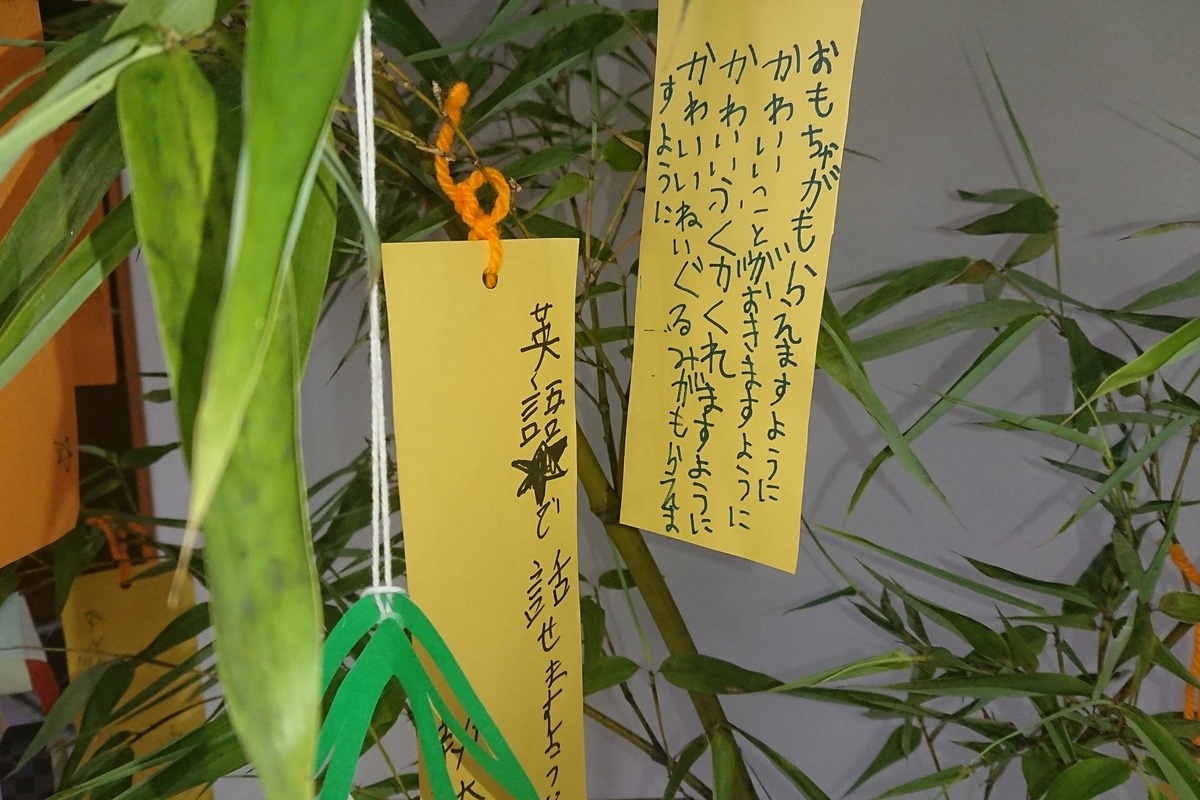 おもちゃがもらえますように
かわいいことがおきますように
かわいいふくがくれますように
かわいいねいぐるみがもらえま
すように
英語で話せますように